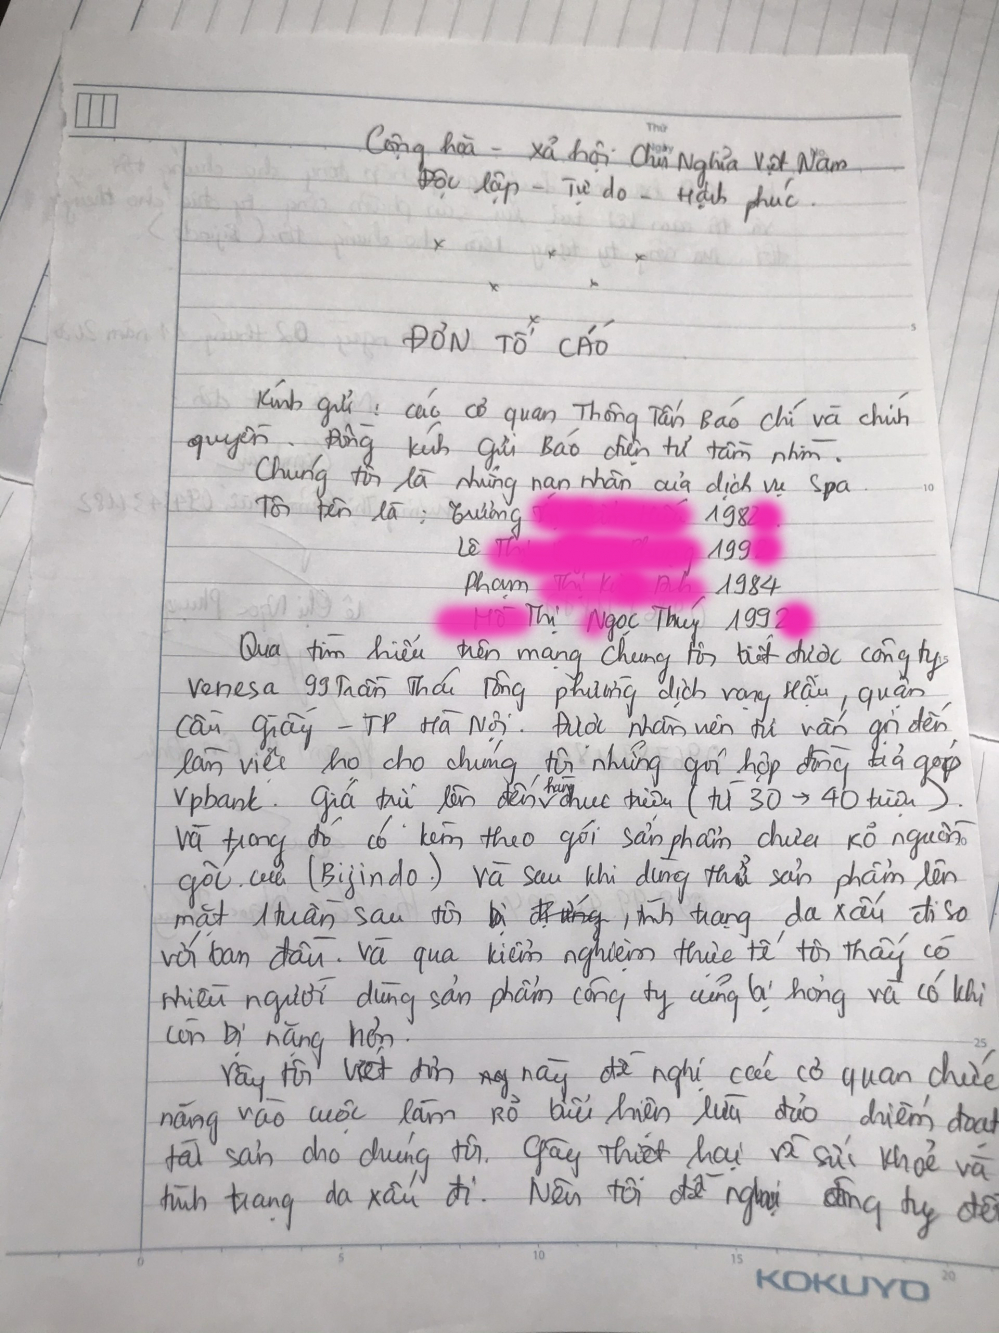 Thứ
Ngày
Cộng hoà - xả hội Chủ Nghĩa Việt Nam
Độc lập - Tự do - Hạnh phúc.
ĐƠN TỐ CÁO
5
Kính gửi : các cơ quan Thông Tấn Báo chí và chính
quyền. Đồng kính gửi Báo điện tử tầm nhìn.
Chúng tôi là những nạn nhân của dịch vụ Spa
10
Tôi tên là : Trương 198
Lê 199
Phạm 1984
Thị Ngọc Thuý 1992
Qua tìm hiểu trên mạng chúng tôi biết được công ty
Venesa 99 Trần Thái Tông phường dịch vọng Hậu, quận
Cầu giấy - TP Hà Nội. Được nhân viên tư vấn gọi đến
làm việc họ cho chúng tôi những gói hợp đồng trả góp
Vpbank. Giá trị lên đến hàng chục triệu (từ 30 → 40 triệu).
Và trong đó có kèm theo gói sản phẩm chưa rõ nguồn
gốc của (Bijindo.) Và sau khi dùng thử sản phẩm lên
mặt 1 tuần sau tôi bị , tình trạng da xấu đi so
với ban đầu. Và qua kiểm nghiệm thực tế tôi thấy có
nhiều người dùng sản phẩm công ty cũng bị hỏng và có khi
còn bị nặng hơn.
25
Vậy tôi viết đơn này đề nghị các cơ quan chức
năng vào cuộc làm rỏ biểu hiện lừa đảo chiếm đoạt
tài sản cho chúng tôi. Gây thiệt hại về sức khoẻ và
tình trạng da xấu đi. Nên tôi đề nghị công ty đền
0 5 10 15 20
KOKUYO